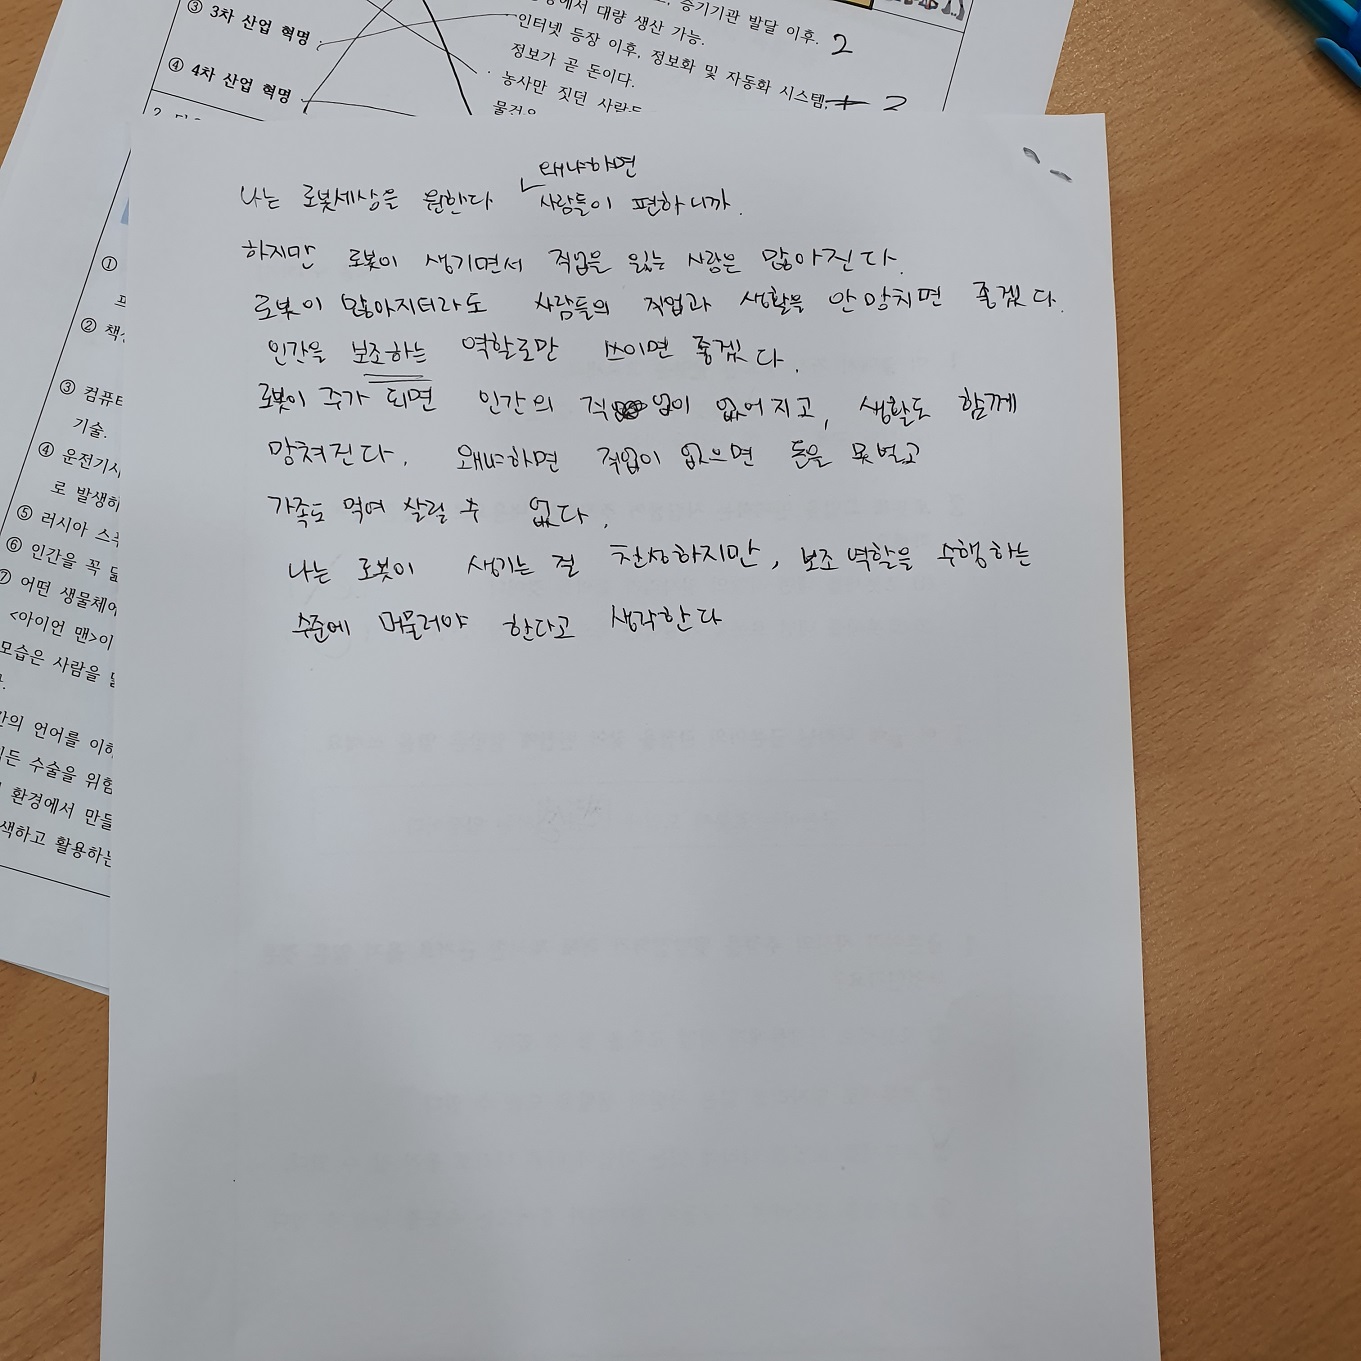 ③ 3차 산업 혁명
④ 4차 산업 혁명
증기기관 발달 이후. 2
대량 생산 가능.
인터넷 등장 이후, 정보화 및 자동화 시스템. 2
정보가 곧 돈이다.
농사만 짓던
왜냐하면
나는 로봇세상을 원한다 사람들이 편하니까.
하지만 로봇이 생기면서 직업을 잃는 사람은 많아진다.
로봇이 많아지더라도 사람들의 직업과 생활을 안망치면 좋겠다.
인간을 보조하는 역할로만 쓰이면 좋겠다.
로봇이 주가 되면 인간의 직업이 없어지고, 생활도 함께
망쳐진다. 왜냐하면 직업이 없으면 돈을 못벌고
가족도 먹여 살릴 수 없다.
나는 로봇이 생기는 걸 찬성하지만, 보조 역할을 수행하는
수준에 머물러야 한다고 생각한다
①
②
③ 컴퓨터
기술.
④ 운전기사
로 발생하
⑤ 러시아
⑥ 인간을 꼭
⑦ 어떤 생물체에
<아이언 맨>이
모습은 사람을
언어를 이해
수술을 위험
환경에서 만들
색하고 활용하는